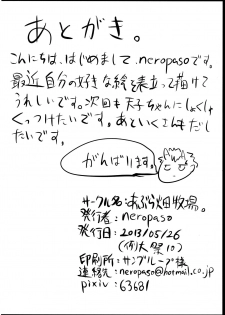 あとがき。
こんにちは、はじめまして、neropasoです。
最近自分の好きな絵を表立って描けて
うれしいです。次回も天子ちゃんにしょくしゅ
くっつけたいです。あといくさんもだし
たいです。
がんばります。
サークル名：あぶら畑牧場。
発行者：neropaso
発行日：2013/05/26
（例大祭10）
印刷所：サングループ様
連絡先：neropaso@hotmail.co.jp
pixiv：63681